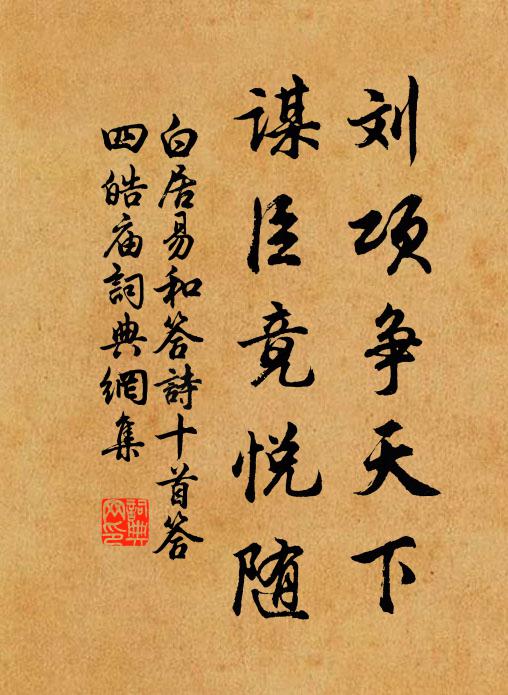 刘项争天下
谋臣竟悦随
白居易和答詩十首答
四皓庙詞典網集
詞典
网印